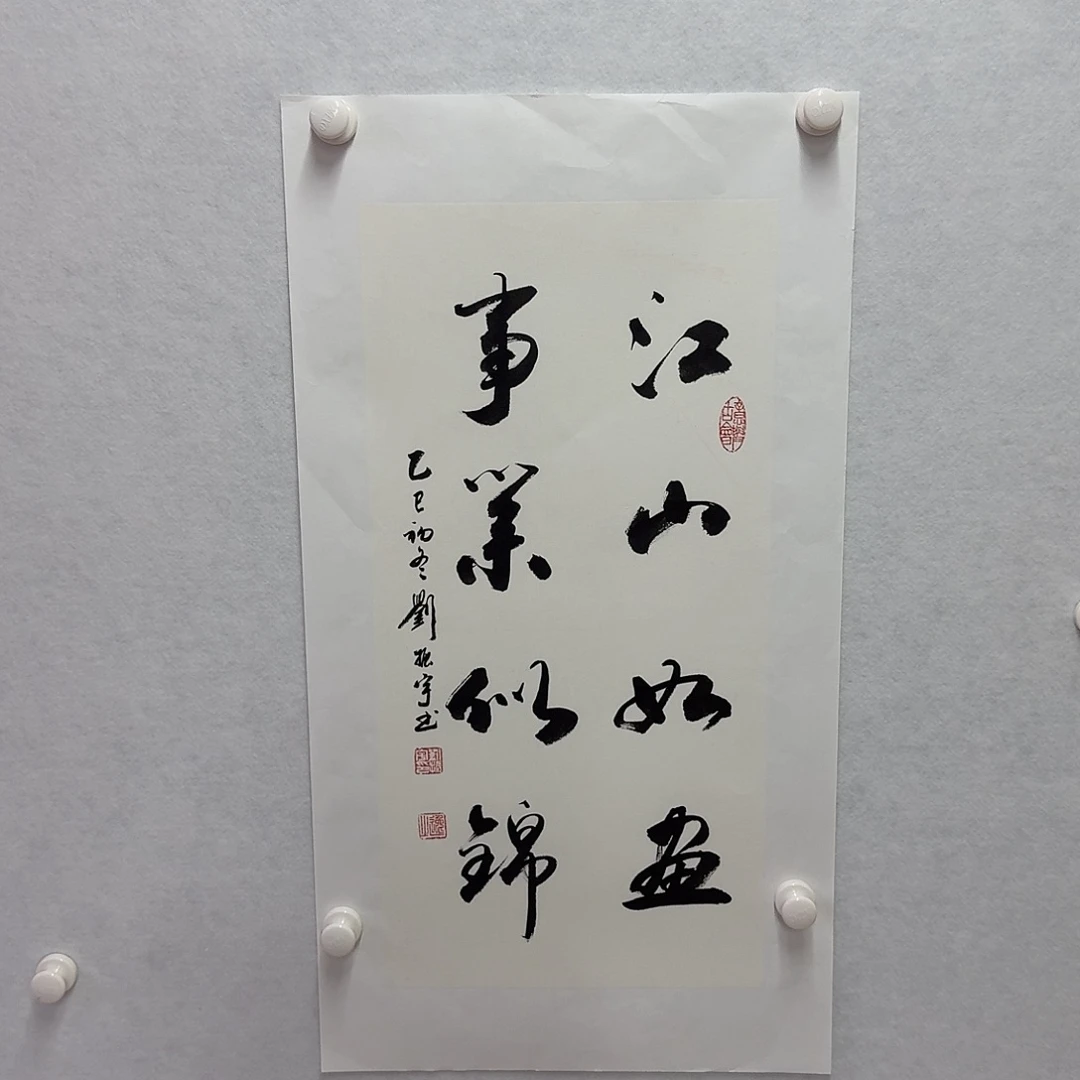 江山如畫
事業似錦
乙巳初冬劉振宇书